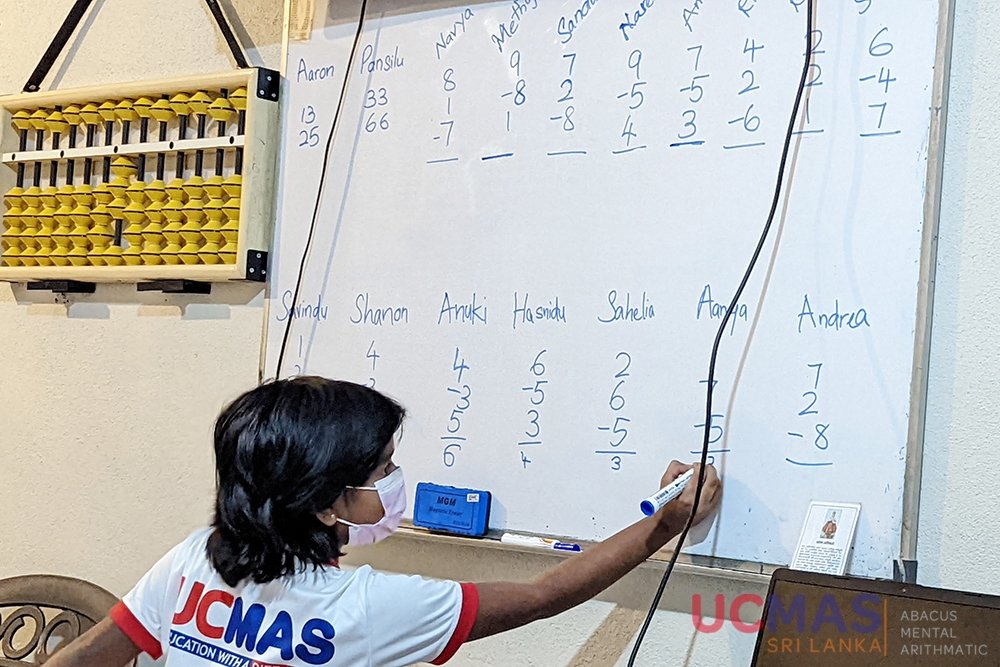 Aaron
13
25
Pansilu
33
66
Navya
8
1
-7
9
-8
1
7
2
-8
9
-5
4
7
-5
3
4
2
-6
2
2
1
6
-4
7
Savindu
1
Shanon
4
Anuki
4
-3
5
6
Hasnidu
6
-5
3
4
Sahelia
2
6
-5
3
Aanya
-5
Andrea
7
2
-8
MGM
UCMAS
UCMAS
SRI LANKA
ABACUS
MENTAL
ARITHMATIC